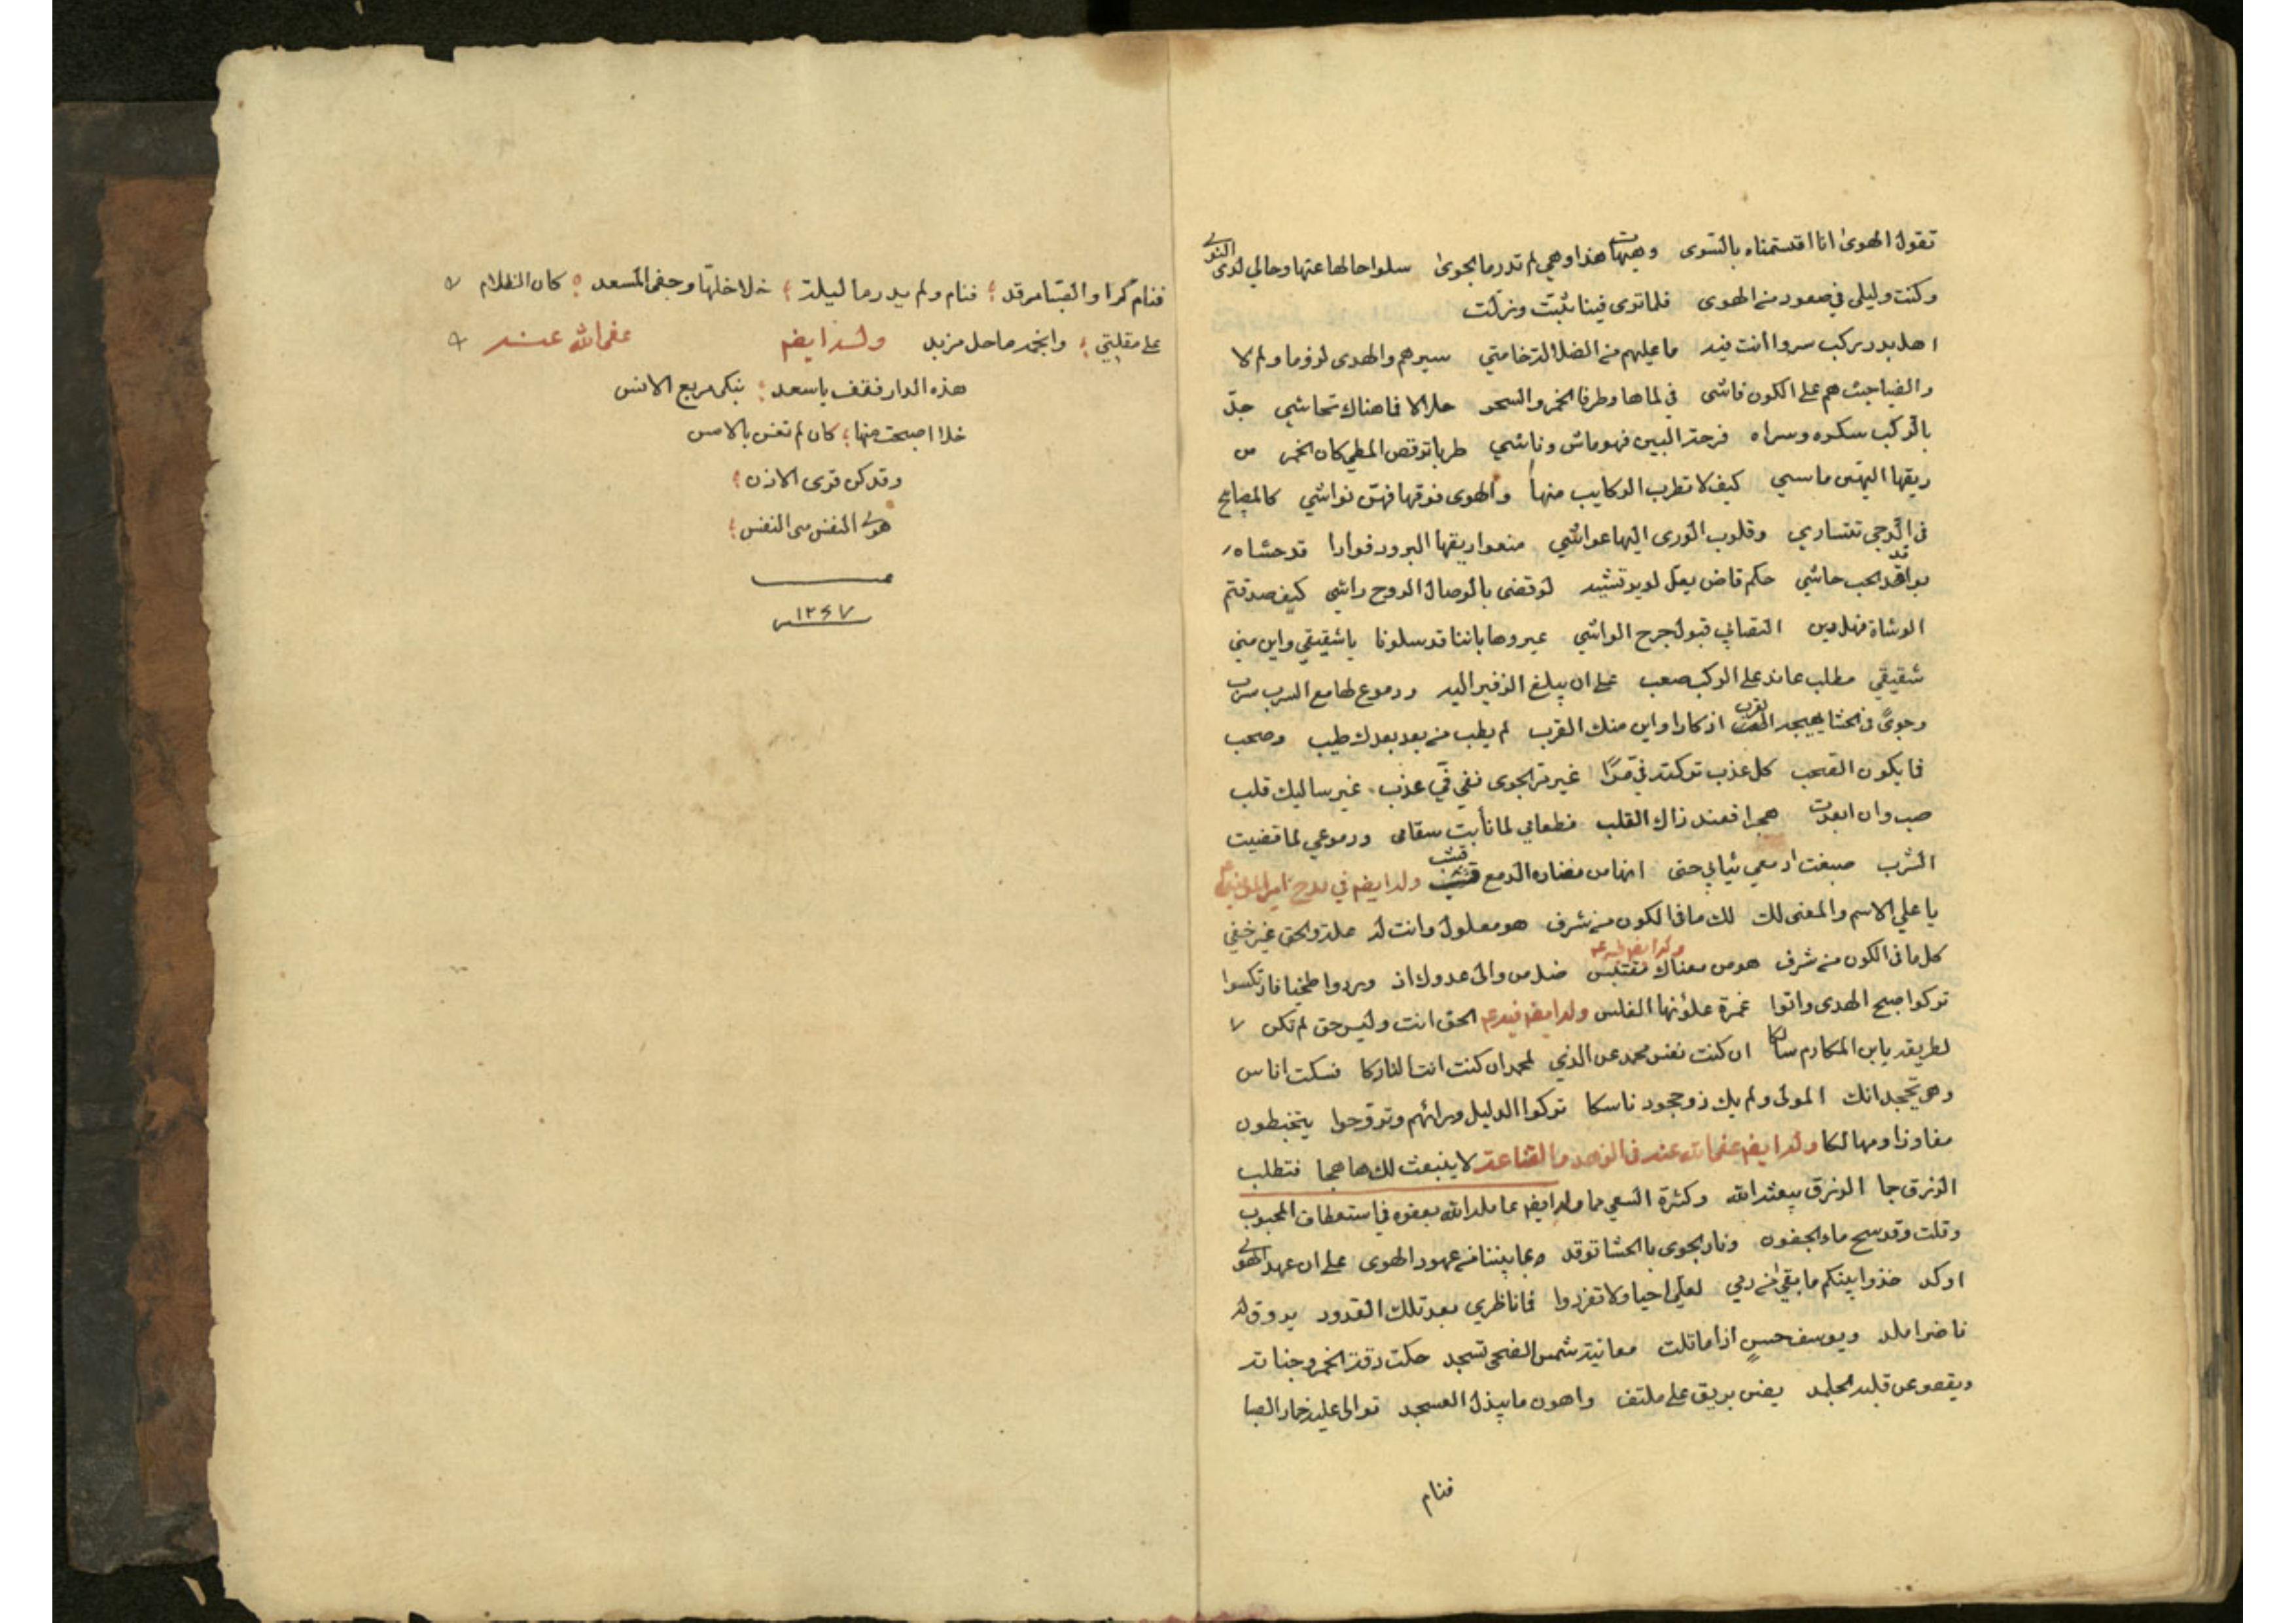 تقول الهوى انا اقتسمناه بالسوى وهبها هذا وهي لم تدر ما الجوى سلوا حالها عنها وحالي لدى النوى
وكنت وليلى في صعود من الهوى فلما توى فينا ثبت وزلت
اهل بدر بركب سروا أنت فيه ما عليهم من الضلالة خامتي سيرهم والهدى لزوما ولم لا
والضيا حيث هم على الكون فاشي في لماها وطرفا الخمر والسحر حلالا فما هناك تحاشي جد
بالركب سكره وسراه فرحة البين فهو ماش وناشي طربا ترقص المطي كان الخمر من
ريقها اليهن ماسي كيف لا تطرب الركايب منها والهوى فوقها فهن نواشي كالمصابيح
في الدجى تتساري وقلوب الورى اليها عواشي منعوا ريقها البرود فوادا قد حشاه
بواقد الحب حاشي حكم قاض يعل لو يرتشيه لو قضى بالوصال الروح راشي كيف صدقتم
الوشاة فهل دين التصابي قبول جرح الواشي عيروها باننا قد سلونا يا شقيقي واين مني
شقيقي مطلب عاند على الركب صعب على ان يبلغ الزفير اليه ودموع لها مع السرب سرب
وجوى في الحشا يهيجه القرب اذكارا واين منك القرب لم يطب من بعد بعدك طيب وصحب
فما يكون الصحب كل عذب تركته في مرا غير مر الجوى ففي في عذب غير ساليك قلب
صب وان ابعدت هجرا فعند ذاك القلب فطعامي لما نأيت سقامى ودموعي لما قضيت
الشرب صبغت ادمعي ثيابي حتى انها من نضاره الدمع قشب وله ايضا في مدح امير المؤمنين
يا علي الاسم والمعنى لك لك ما في الكون من شرف هو معلول وانت له علة والحق غير خفي
وله ايضا فيه ع
كل ما في الكون من شرف هو من معناك مقتبس ضل من والى عدوك اذ وردوا طخيا فارتكسوا
تركوا صبح الهدى واتوا غمرة علونها الغلس وله ايضا فيه ع الحق انت وليس حق لم تكن
لطريقه يابن المكارم سالكا ان كنت نفس محمد عن الذي لمحمد ان كنت انت التاركا نسكت اناس
وهي تجحد انك المولى ولم يك ذو جحود ناسكا تركوا الدليل وراءهم وتروحوا يتخبطون
مفاوزا ومهالكا وله ايضا عفى الله عنه في الزهد والقناعة لا ينبعث لك هاهجا فتطلب
الرزق جا الرزق يبعثه الله وكثرة السعي ما وله ايضا عامله الله بعفوه في استعطاف المحبوب
وقلت وقد سح ماء الجفون ونار الجوى بالحشا توقد وبما بيننا من عهود الهوى على ان عهد الهوى
اوكد خذوا بينكم ما بقي من دمي لعلي احيا ولا تفردوا فما ناظري بعد تلك القدود يروق له
ناضرا ملد ويوسف حسن اذا ما تلت معانيه شمس الضحى تسجد حكت رقة الخمر وجناته
ويقصو عن قلبه الجلمد يضن بريق على ملتف واهون ما يبذل العسجد توالى عليه خمار الصبا
فنام
فنام كرا والصبا مرقد فنام ولم يدر ما ليلة خلا خلها وجفى المسعد كان الظلام
على مقلتي وانجمه ماحل مزبد وله ايضا عفى الله عنه
هذه الدار فقف يا سعد نبكي مربع الانس
خلا اصبحت منها كان لم تغن بالامس
وقد كن قوى الاذن
هوى النفس من النفس
١٢٦٧